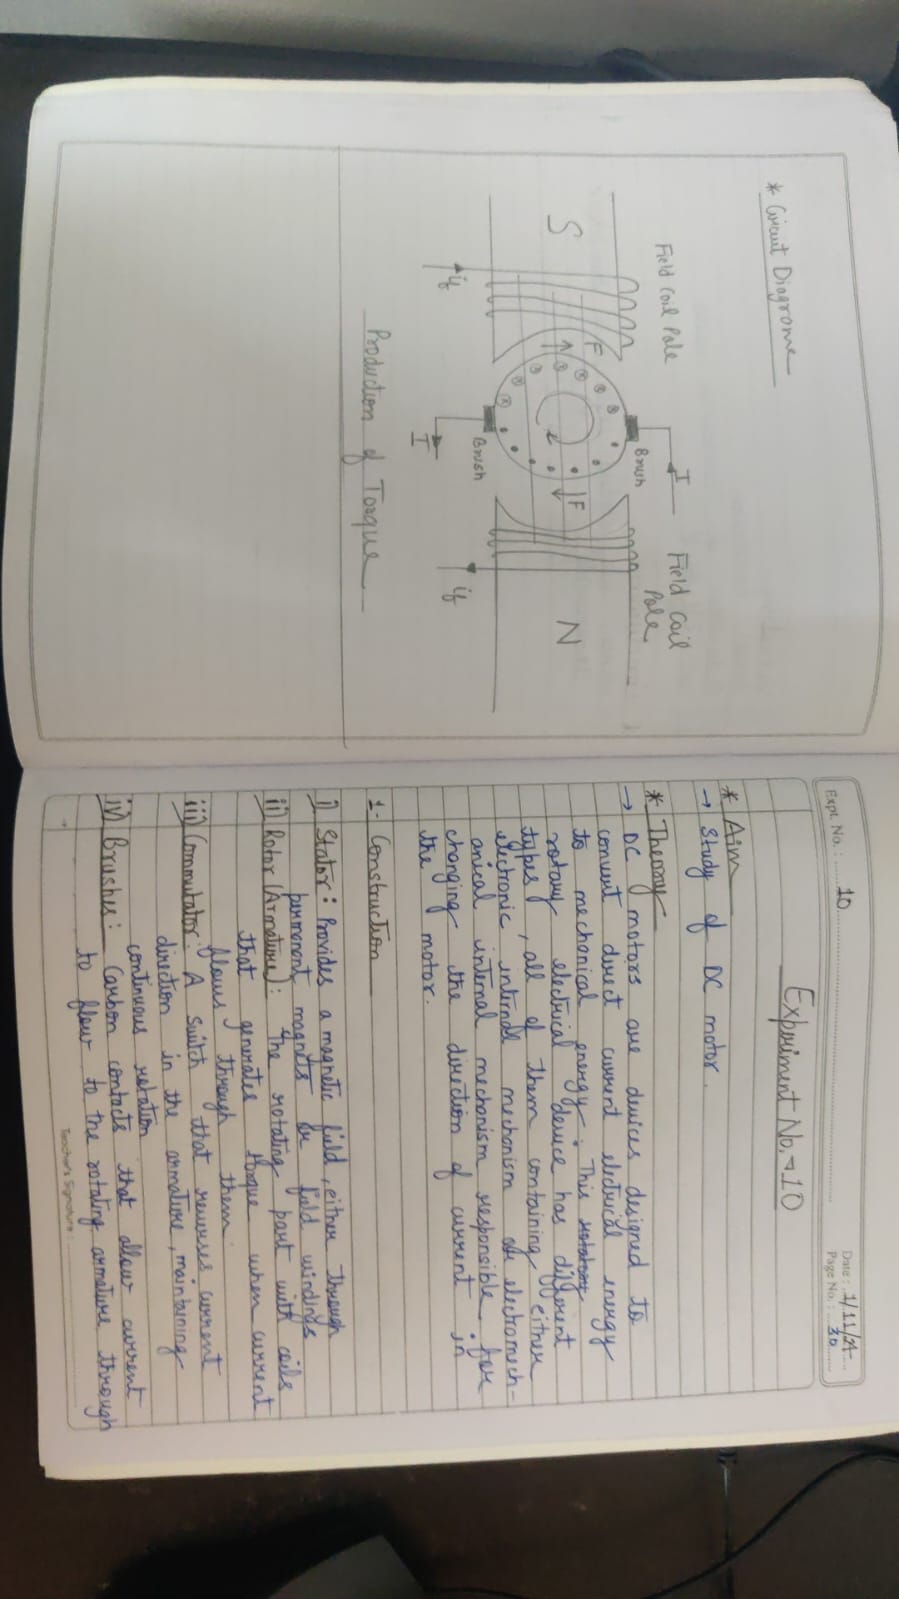 * Circuit Diagrome
Field Coil Pole
Field Coil
Pole
I
Brush
S
F
F
N
Brush
I
if
if
Production of Torque
Expt. No. : 10
Date : 1/11/24
Page No. : 30
Experiment No. → 10
* Aim
→ Study of DC motor.
* Theory
→ DC motors are devices designed to
convert direct current electrical energy
to mechanical energy. This
rotary electrical device has different
types, all of them containing either
electronic internal mechanism electromech-
anical internal mechanism responsible for
changing the direction of current in
the motor.
1- Construction
i) Stator: Provides a magnetic field, either through
permenent magnets or field windings
ii) Rotor (Armature): The rotating part with coils
that generates torque when current
flows through them.
iii) Commutator: A switch that reverses current
direction in the armature, maintaining
continuous rotation
iv) Brushes: Carbon contacts that allow current
to flow to the rotating armature through
Teacher's Signature :